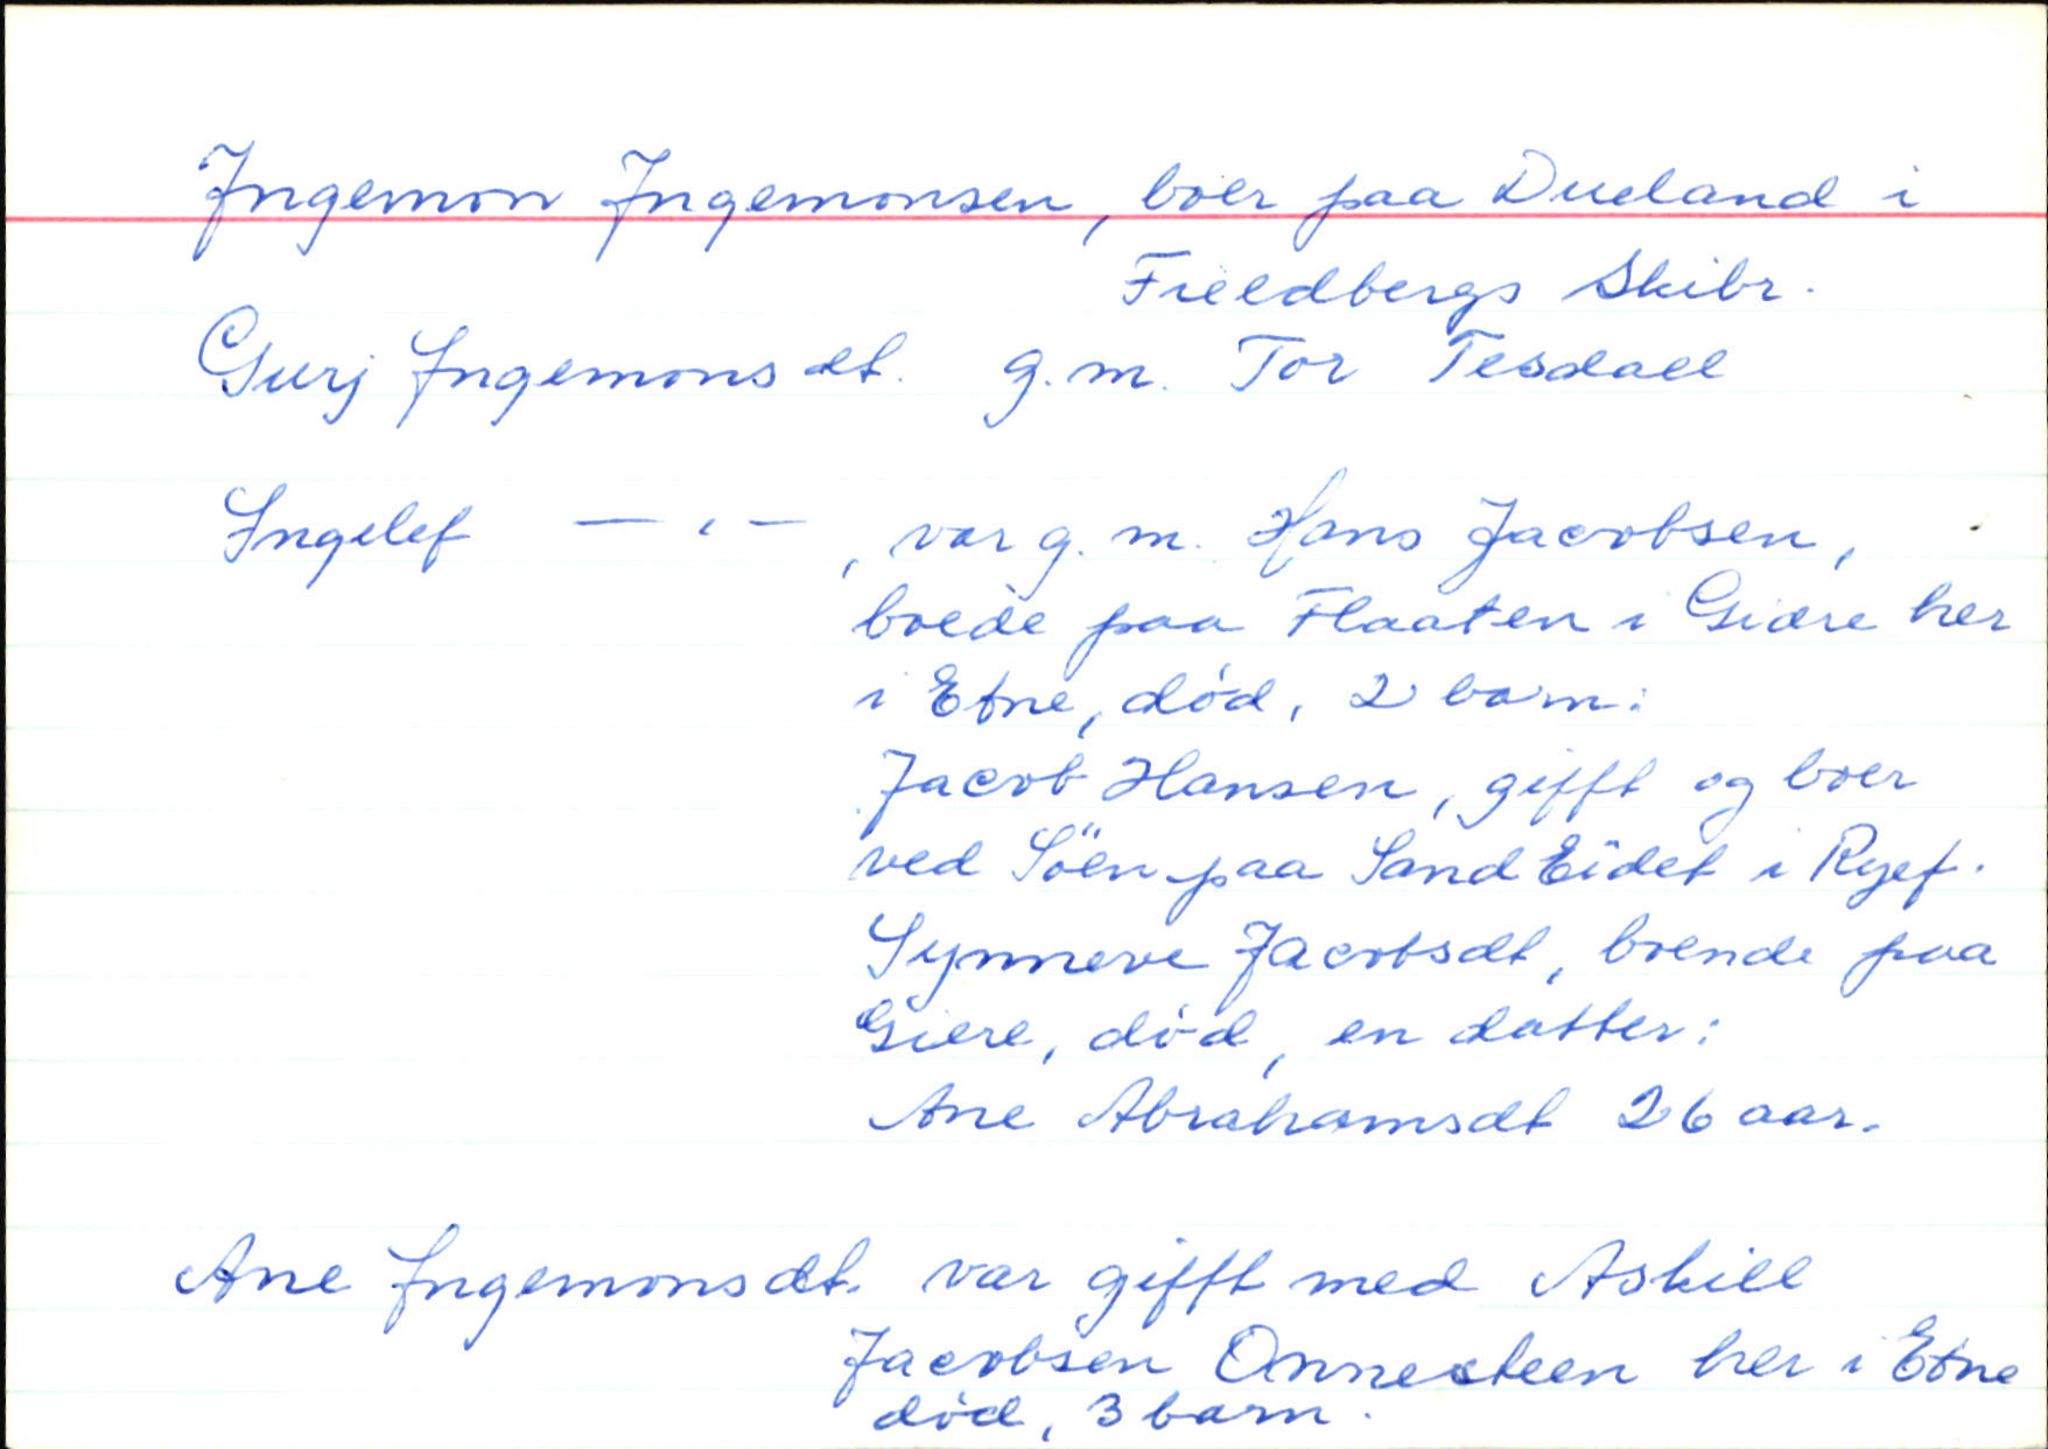 Ingemon Ingemonsen, boer paa Dueland i
Fieldbergs Skibr.
Gurj Ingemonsdt. g.m. Tor Tesdall
Ingelef — " — , var g.m. Hans Jacobsen,
boede paa Flaaten i Giære her
i Etne, död, 2 barn:
Jacob Hansen, gifft og boer
ved Söen paa Sand Eidet i Ryef.
Synneve Jacobsdt, boende paa
Giere, död, en datter:
Ane Abrahamsdt 26 aar.
Ane Ingemonsdt. var gifft med Askill
Jacobsen Önnesteen her i Etne
död, 3 barn.